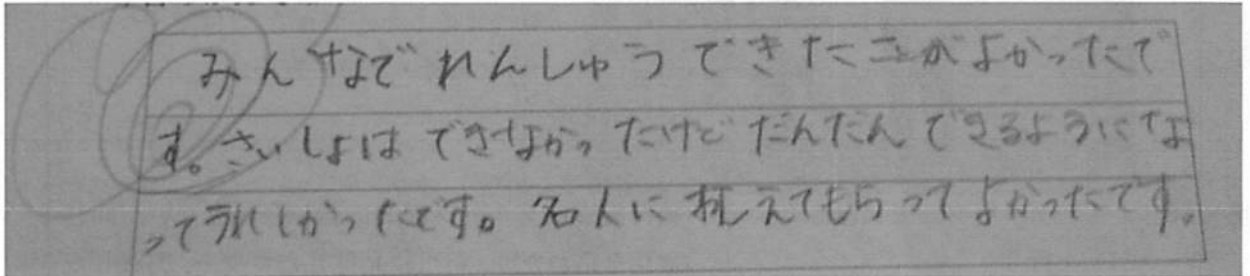 みんなでれんしゅうできたことがよかったで
す。さいしょはできなかったけどだんだんできるようにな
ってうれしかったです。名人に教えてもらってよかったです。